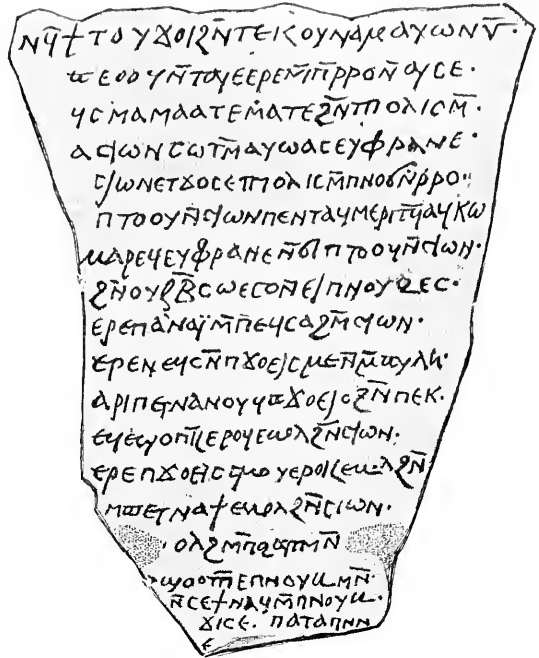 ⲛϥ̄ϯⲧⲟⲩϫⲟⲓϩⲛ̄ⲧⲉⲕⲟⲩⲛⲁⲙⲉⲁϥⲱⲛⲛ̄·
ⲡⲉⲟⲟⲩⲛ̄ⲧϣⲉⲉⲣⲉⲙ̄ⲡⲣ̄ⲣⲟⲛ̄ⲟⲩⲥⲉ·
ϥⲥⲙⲁⲙⲁⲁⲧⲉⲙⲁⲧⲉϩⲛ̄ⲧⲡⲟⲗⲓⲥⲙ̄·
ⲁⲥⲓⲱⲛⲥⲱⲧⲙ̄ⲁⲩⲱⲁⲥⲉⲩⲫⲣⲁⲛⲉ·
ⲥⲓⲱⲛⲉⲧϫⲟⲥⲉⲧⲡⲟⲗⲓⲥⲙ̄ⲡⲛⲟϭⲛ̄ⲣ̄ⲣⲟ··
ⲡⲧⲟⲟⲩⲛ̄ⲥⲓⲱⲛⲡⲉⲛⲧⲁϥⲙⲉⲣⲓⲧϥ̄ⲁϥⲕⲱ
ⲙⲁⲣⲉϥⲉⲩⲫⲣⲁⲛⲉⲛ̄ϭⲓⲡⲧⲟⲟⲩⲛ̄ⲥⲓⲱⲛ·
ϩⲛ̄ⲟⲩϩⲃ̄ⲥⲱⲉⲥⲟⲛ̄ⲉⲓⲡⲛⲟⲩϩⲉⲥ·
ⲉⲣⲉⲡⲁⲛⲁⲓ̈ⲙ̄ⲡⲉϥⲥⲁϩⲛ̄ⲥⲓⲱⲛ·
ⲉⲣⲉⲛⲉϥⲥⲛ̄ⲡϫⲟⲉⲓⲥⲙⲉⲛ̄ⲙ̄ⲡⲩⲗⲏ·
ⲁⲣⲓⲡⲉⲧⲛⲁⲛⲟⲩϥⲡϫⲟⲉⲓⲥϩⲛ̄ⲡⲉⲕ·
ⲉϥⲉϣⲟⲡϥ̄ⲉⲣⲟϥⲉⲃⲟⲗϩⲛ̄ⲥⲓⲱⲛ·
ⲉⲣⲉⲡϫⲟⲉⲓⲥⲥⲙⲟⲩⲉⲣⲟⲕⲉⲃⲟⲗϩⲛ̄
ⲙⲡⲉⲧⲛⲁϯⲉⲃⲟⲗϩⲛ̄ⲥⲓⲱⲛ·
ⲟⲗϩⲙ̄ⲡϩⲁⲡⲙⲛ̄
ϣⲟⲟⲡⲙ̄ⲡⲛⲟⲩⲃⲙⲛ̄·
ⲛ̄ⲥⲉϯⲛⲁϥⲙ̄ⲡⲛⲟⲩⲃ
ϫⲓⲥⲉ. ⲡⲁⲧⲁⲡⲛⲛ
ⲉ